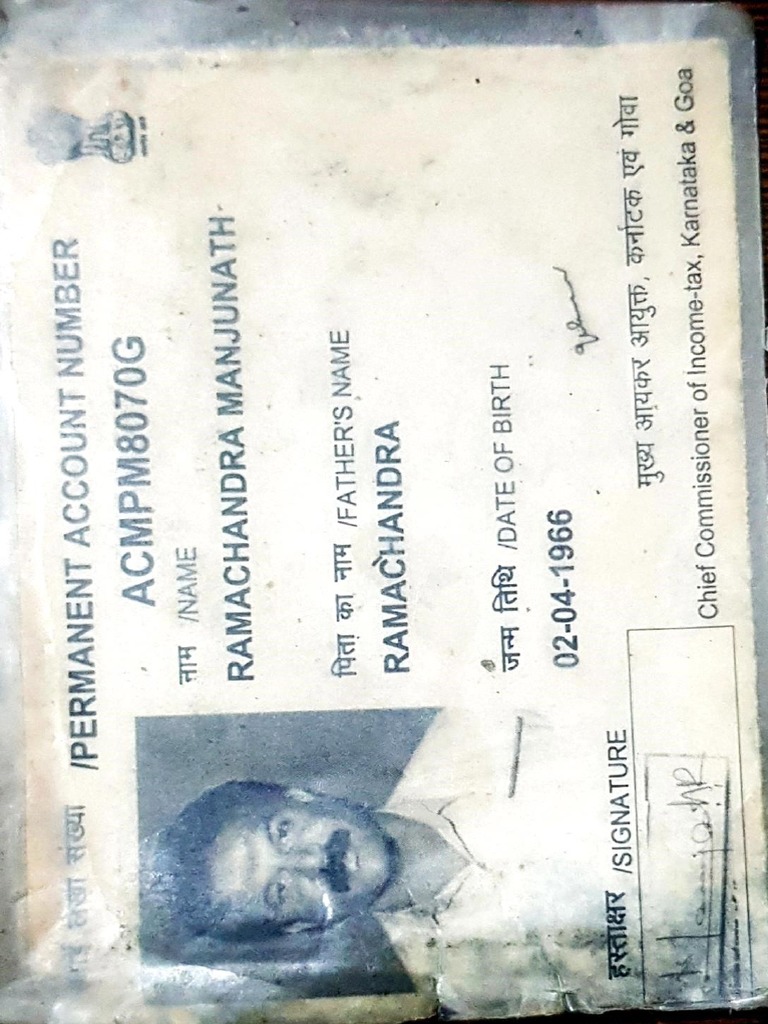 लेखा संख्या /PERMANENT ACCOUNT NUMBER
ACMPM8070G
नाम /NAME
RAMACHANDRA MANJUNATH
पिता का नाम /FATHER'S NAME
RAMACHANDRA
जन्म तिथि /DATE OF BIRTH
02-04-1966
हस्ताक्षर /SIGNATURE
मुख्य आयकर आयुक्त, कर्नाटक एवं गोवा
Chief Commissioner of Income-tax, Karnataka & Goa